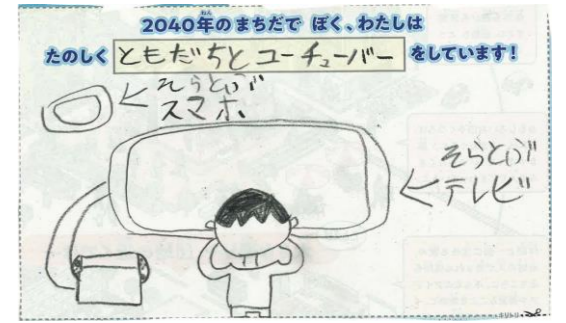 2040年のまちだで ぼく、わたしは
たのしく ともだちとユーチューバー をしています!
そらとぶ
スマホ
そらとぶ
テレビ
キリトリ